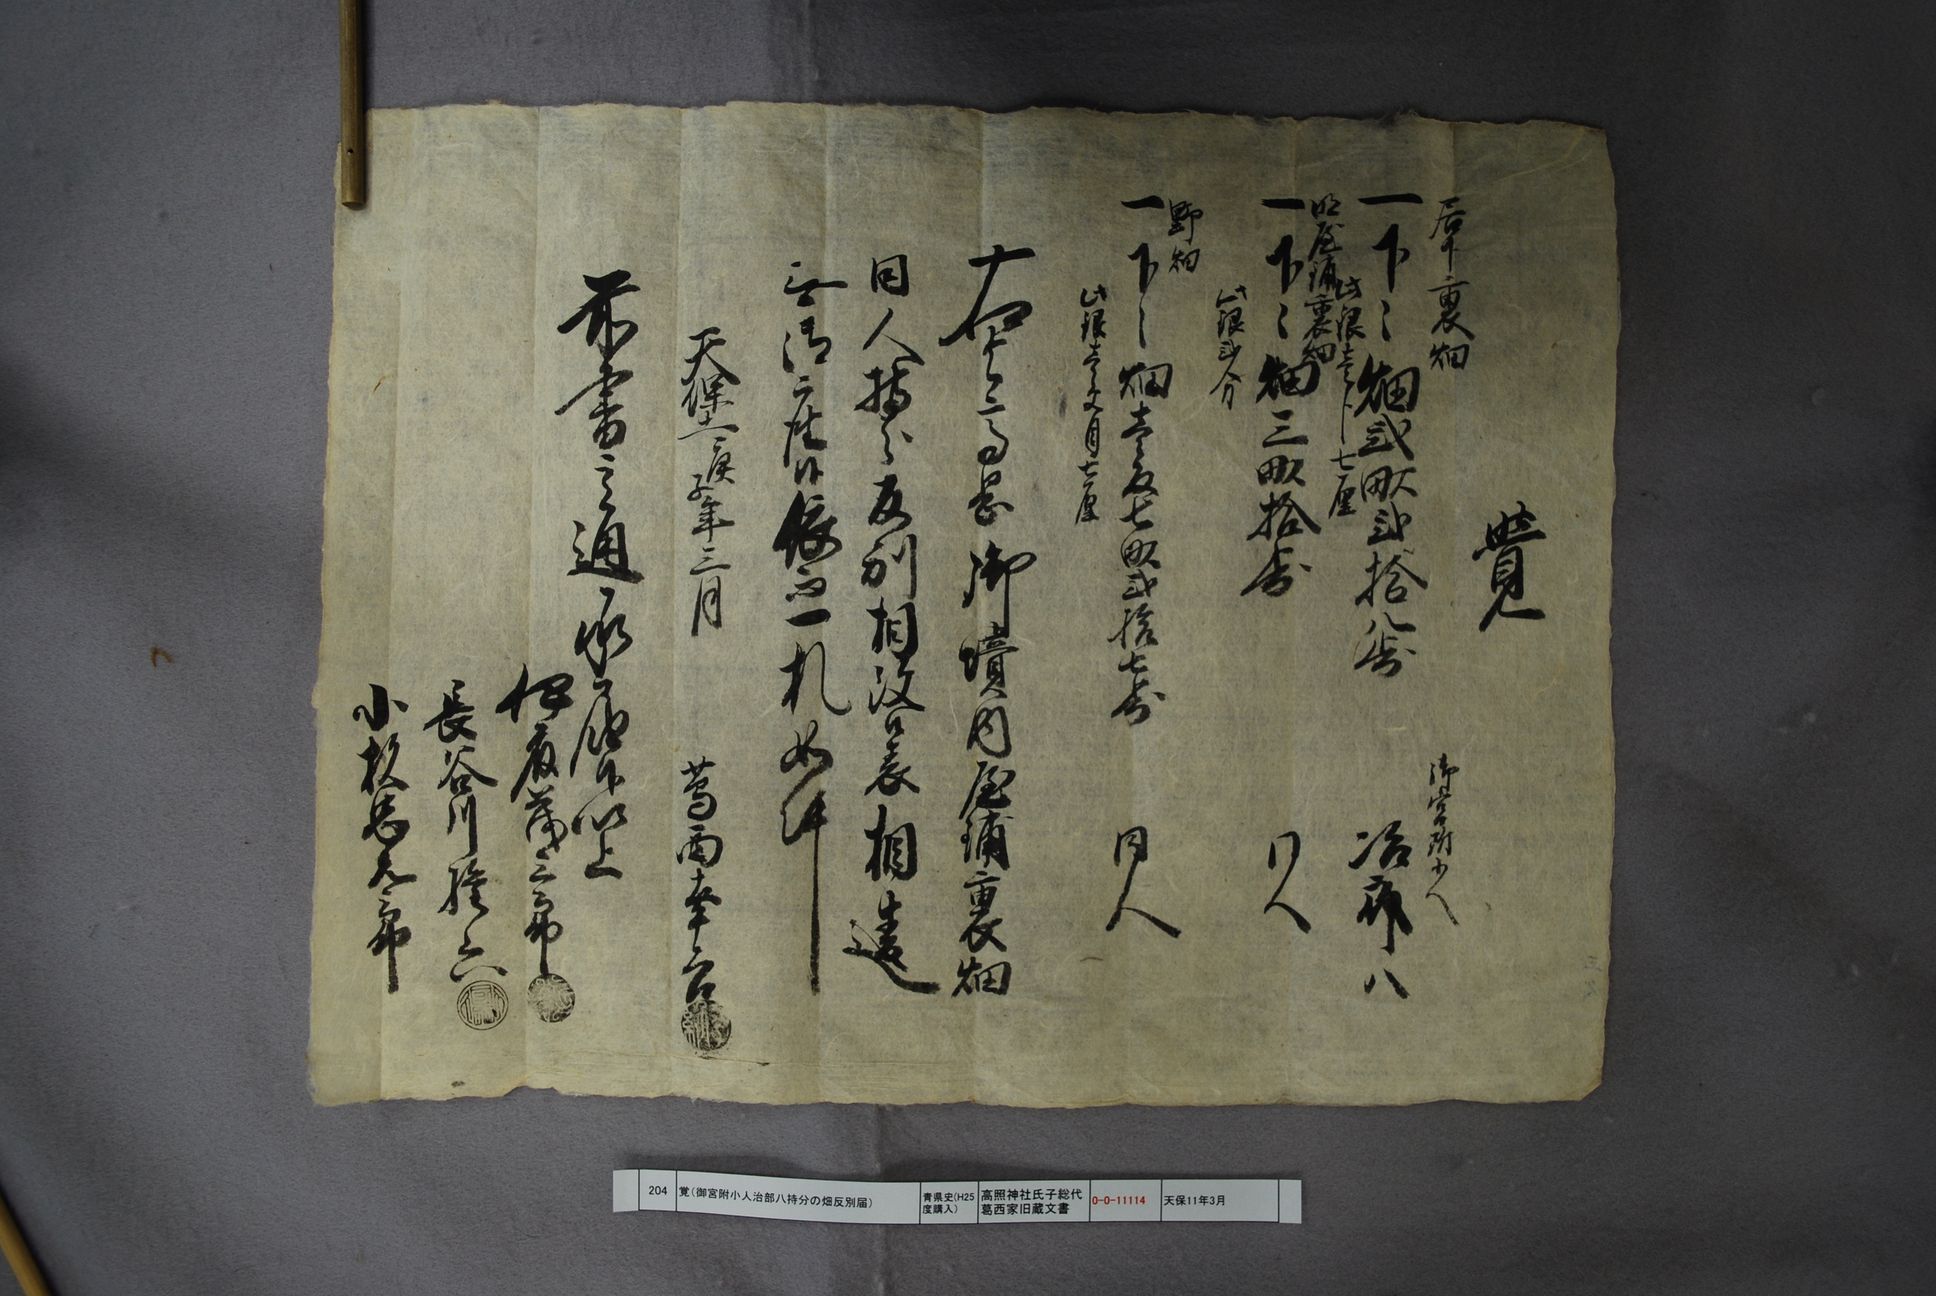 覺
居下裏畑
御宮附小人
一下々畑弐畝弐拾八歩　治部八
此銀壱匁七厘
明屋鋪裏畑
一下々畑三畝拾歩　同人
此銀弐分
野畑
一下々畑壱反七畝弐拾七歩　同人
此銀壱匁七厘
御境内屋鋪裏畑
同人持分反別相改候表相違
無御座候依而一札如件
天保十一庚子年三月
葛西幸
前書之通承届候以上
伊府茂三郎
長谷川
小杉忠元郎
204　覚(御宮附小人治部八持分の畑反別届)　青県史(H25度購入)　高照神社氏子総代葛西家旧蔵文書　0-0-11114　天保11年3月